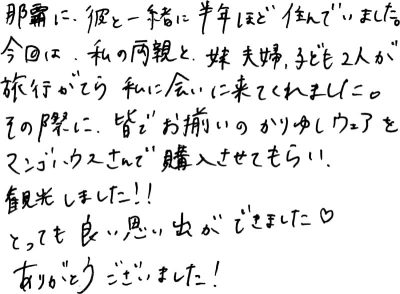 那覇に、彼と一緒に半年ほど住んでいました。
今回は、私の両親と、妹夫婦、子ども2人が
旅行がてら私に会いに来てくれました。
その際に、皆でお揃いのかりゆしウェアを
マンゴハウスさんで購入させてもらい、
観光しました!!
とっても良い思い出ができました♡
ありがとうございました!